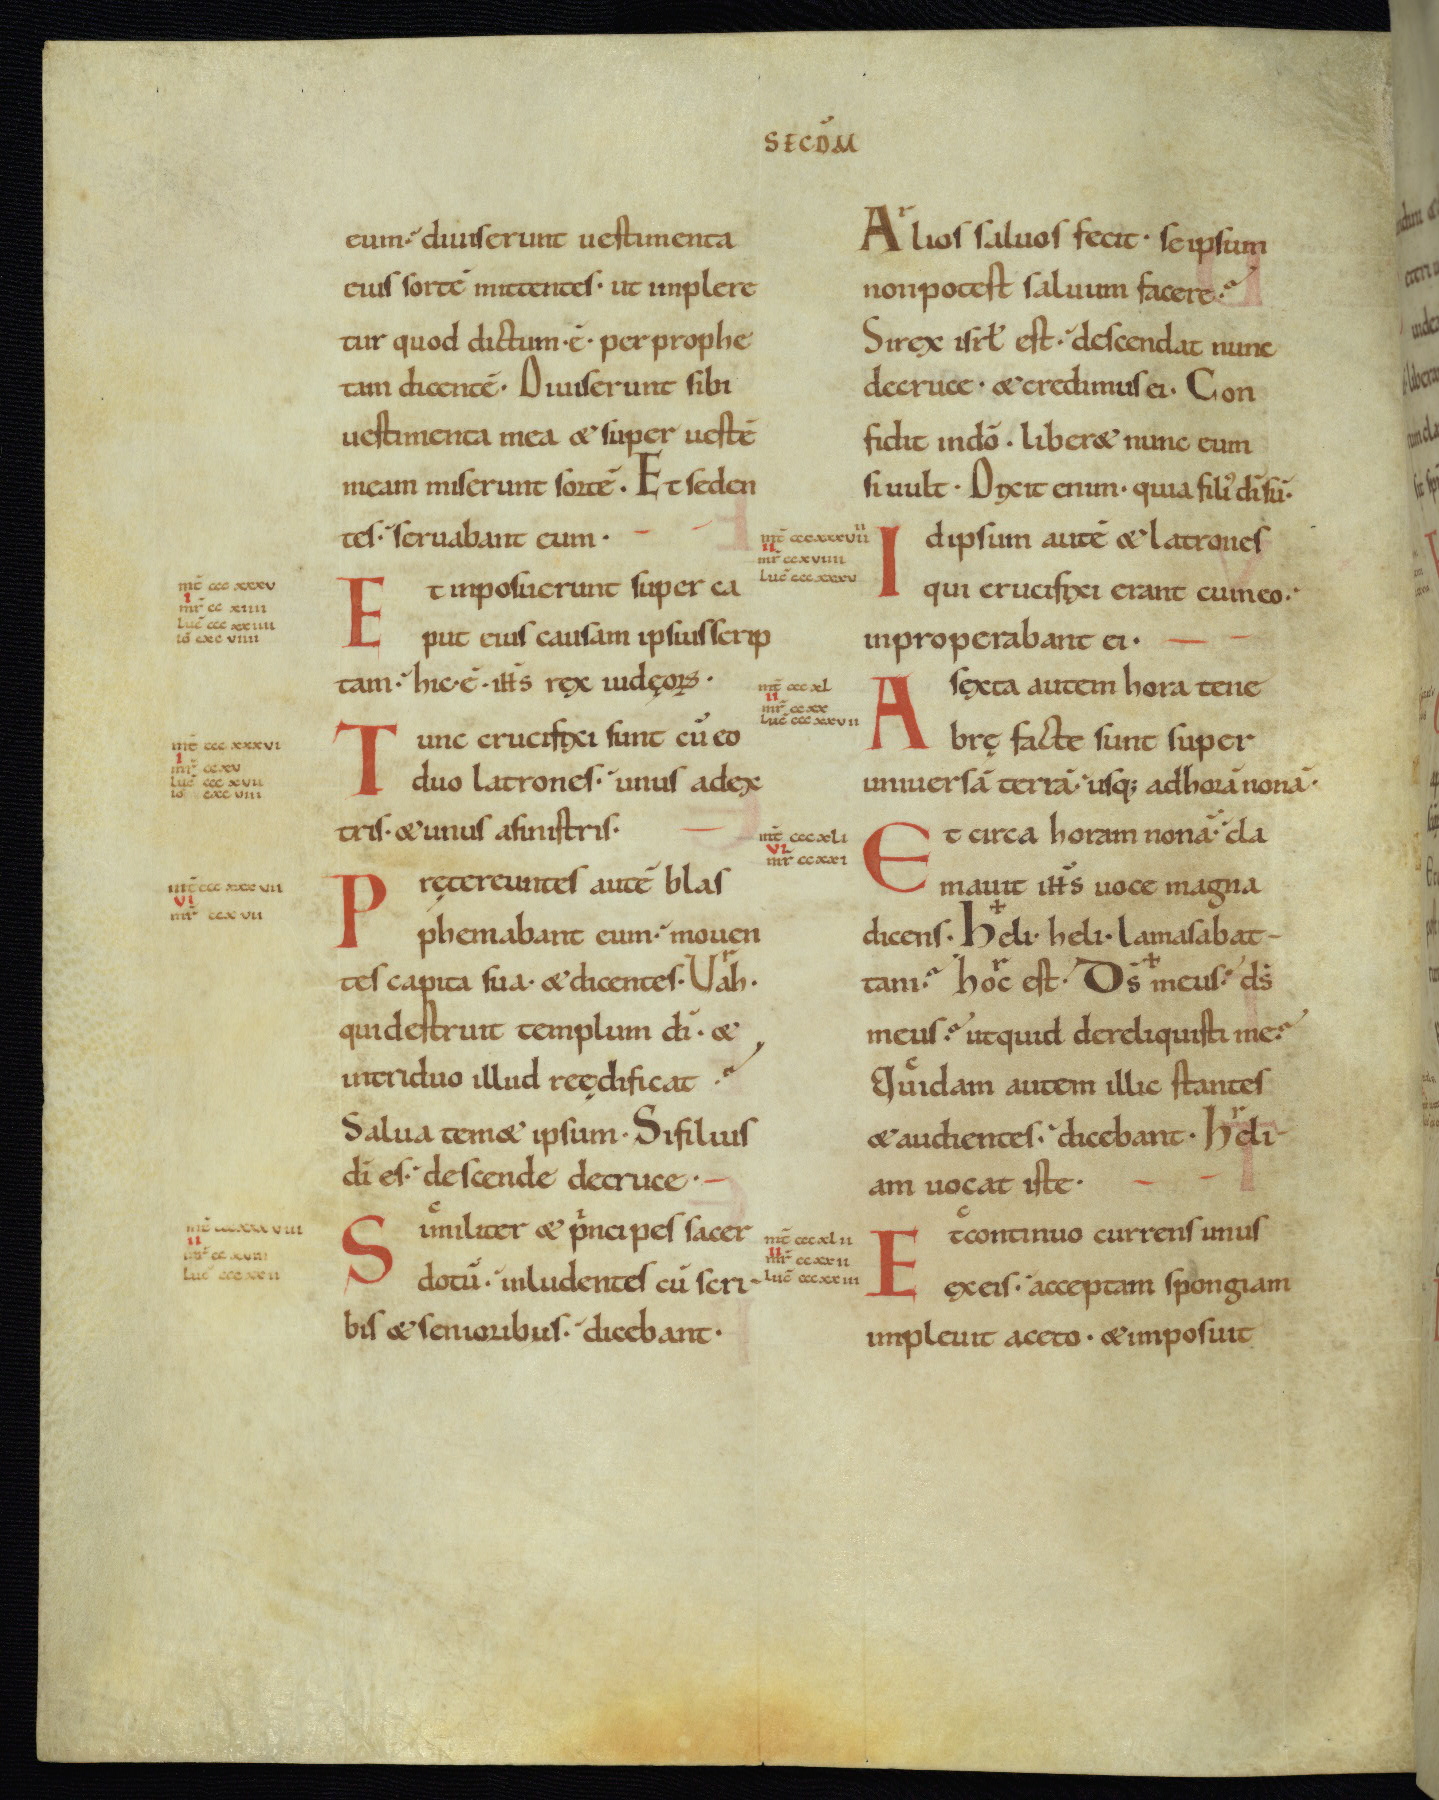 SECD̄M
eum· diuiserunt uestimenta
eius sortē mittentes· ut implere
tur quod dictum·ē· per prophe
tam dicentē· Diuiserunt sibi
uestimenta mea & super uestē
meam miserunt sortē· Et seden
tes· seruabant eum·
mt̄ ccc xxxv
I
mr̄ cc xiiii
Luc̄ ccc xxiiii
iō cxc viiii
Et inposuerunt super ca
put eius causam ipsius scrip
tam· hic·ē· ihs̄ rex iudęoꝝ·
mt̄ ccc xxxvi
I
mr̄ cc xv
Luc̄ ccc xvii
iō cxc viii
Tunc crucifixi sunt cū eo
duo latrones· unus adex
tris· & unus asinistris·
mt̄ ccc xxx vii
VI
mr̄ cc x vii
Prętereuntes autē blas
phemabant eum· mouen
tes capita sua· & dicentes· Uah·
qui destruit templum dī· &
intriduo illud reędificat·
Salua tem& ipsum· Si filius
dī es· descende decruce·
mt̄ ccc xxx viii
II
mr̄ cc xviii
Luc̄ ccc xx ii
Similiter & prīncipes sacer
dotū· inludentes cū scri-
bis & senioribus· dicebant·
Alios saluos fecit· se ipsum
non potest saluum facere·
Si rex isrł est· descendat nunc
decruce· & credimus ei· Con
fidit indō· liber& nunc eum
si uult· Dixit enim· quia filiꝰ dī sū·
mt̄ ccc xxxvii
II
mr̄ cc xviiii
Luc̄ ccc xxxv
Idipsum autē & latrones
qui crucifixi erant cum eo·
inproperabant ei·
mt̄ ccc xl
II
mr̄ cc xx
Luc̄ ccc xxvii
A sexta autem hora tene
brę factę sunt super
uniuersā terrā· usq; adhorā nonā·
mt̄ ccc xli
VI
mr̄ cc xxi
Et circa horam nonā· cla
mauit ihs̄ uoce magna
dicens· heli· heli· lamasabat-
tam· hoc est· Ds̄ meus· ds̄
meus· utquid dereliquisti me·
Quidam autem illic stantes
& audientes· dicebant· heli-
am uocat iste·
mt̄ ccc xl ii
II
mr̄ cc xx ii
Luc̄ ccc xx iii
Et continuo currens unus
ex eis· acceptam spongiam
impleuit aceto· & imposuit